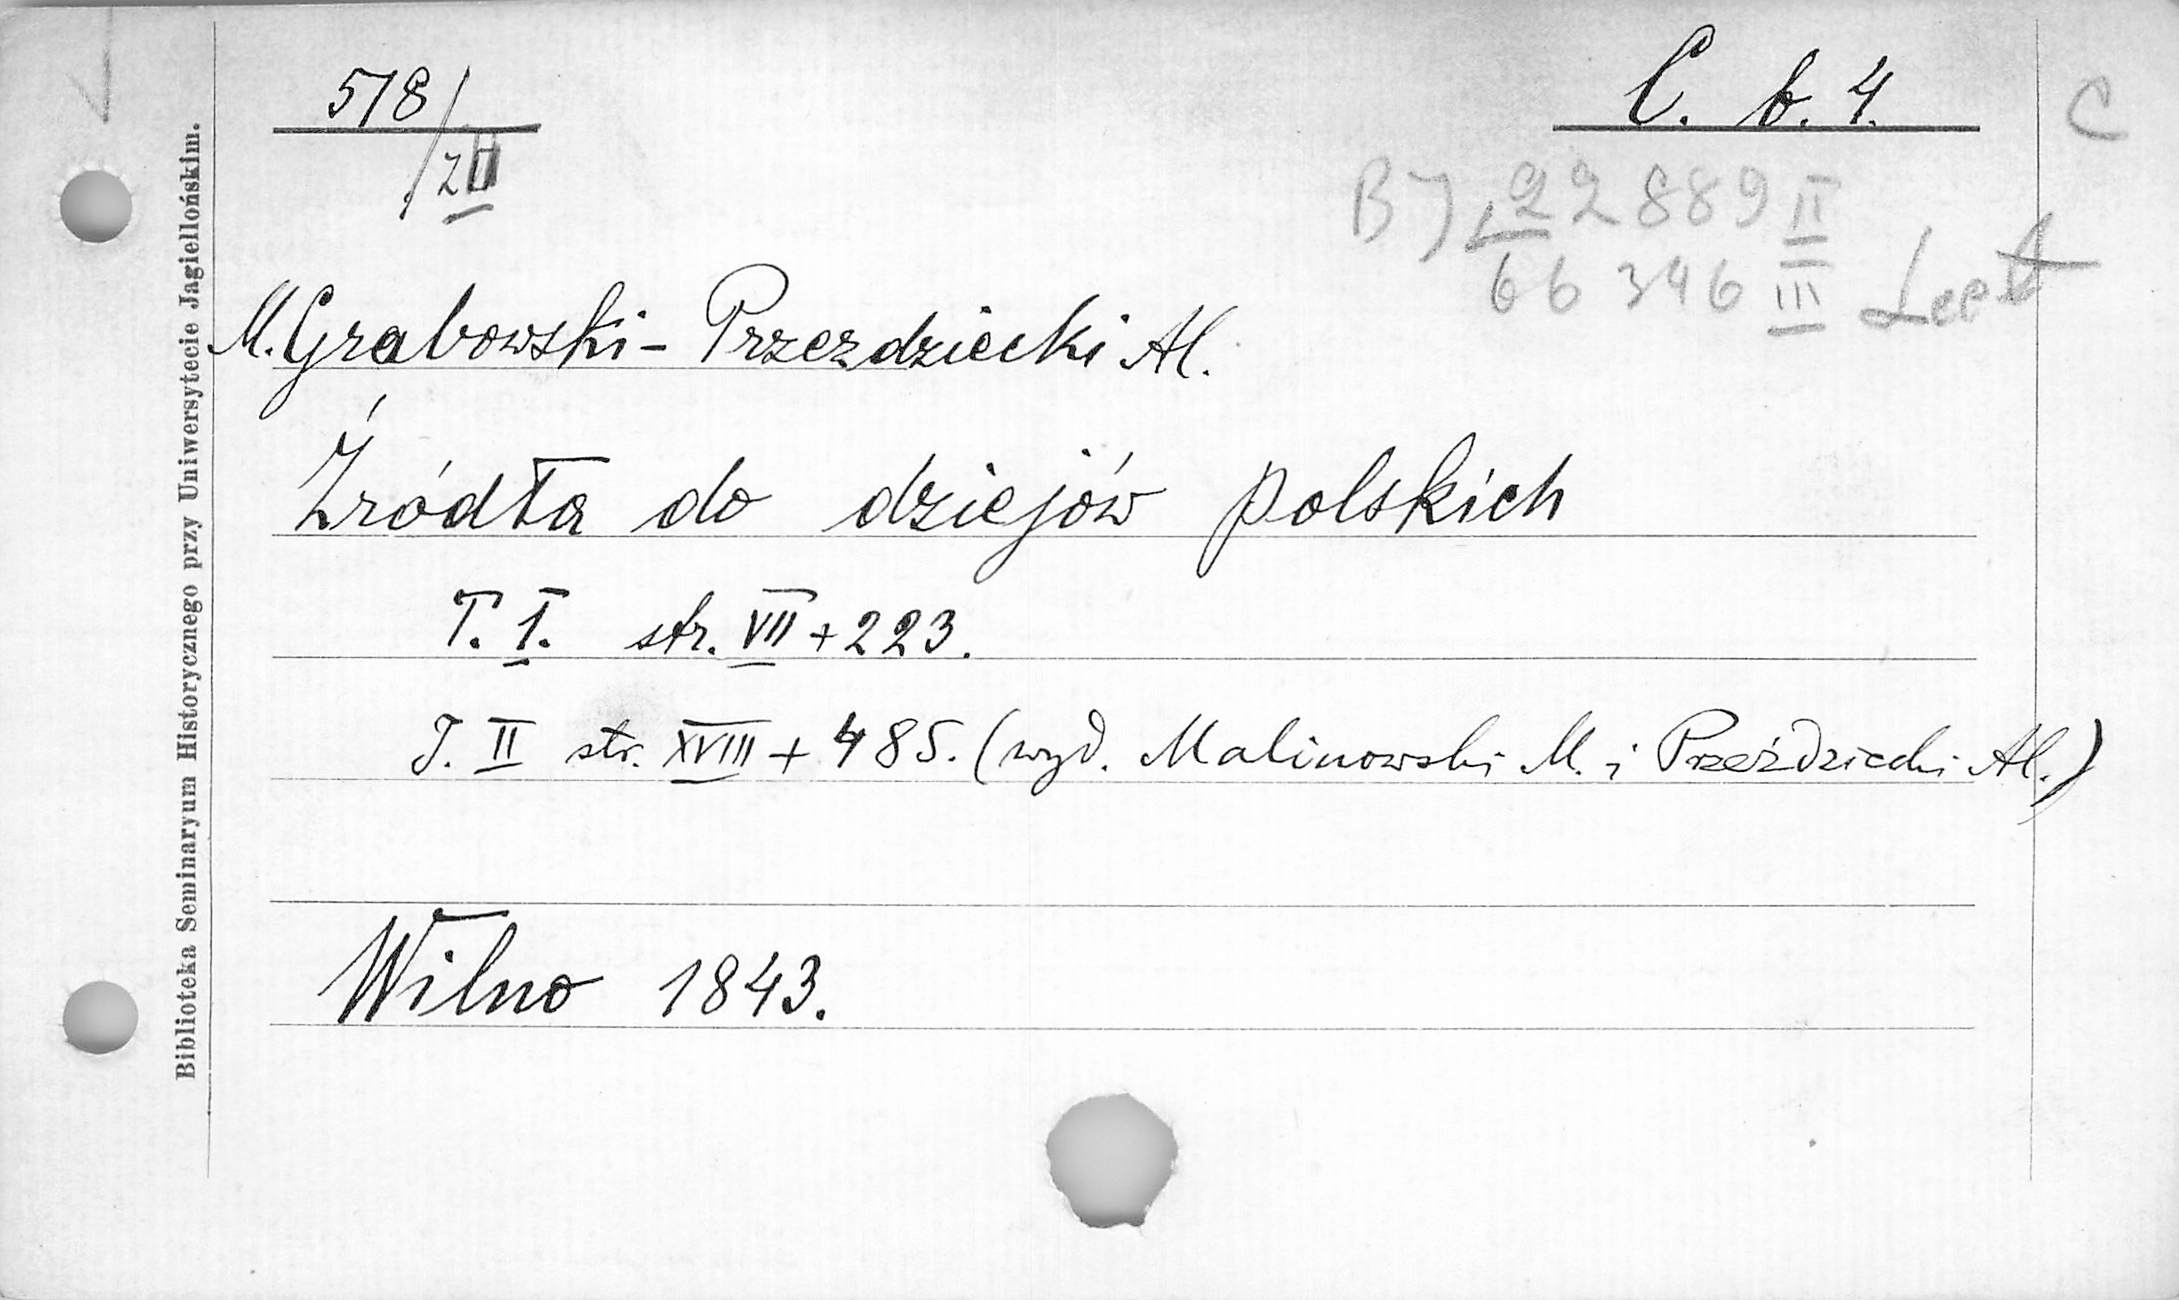 518/zII
C. b. 4.
C
BJ. 22889 II
66346 III Lect
M. Grabowski - Przezdziecki Al.
Źródła do dziejów polskich
T. I. str. VII + 223.
T. II str. XVIII + 485. (wyd. Malinowski M. i Przeździecki Al.)
Wilno 1843.
Biblioteka Seminaryum Historycznego przy Uniwersytecie Jagiellońskim.